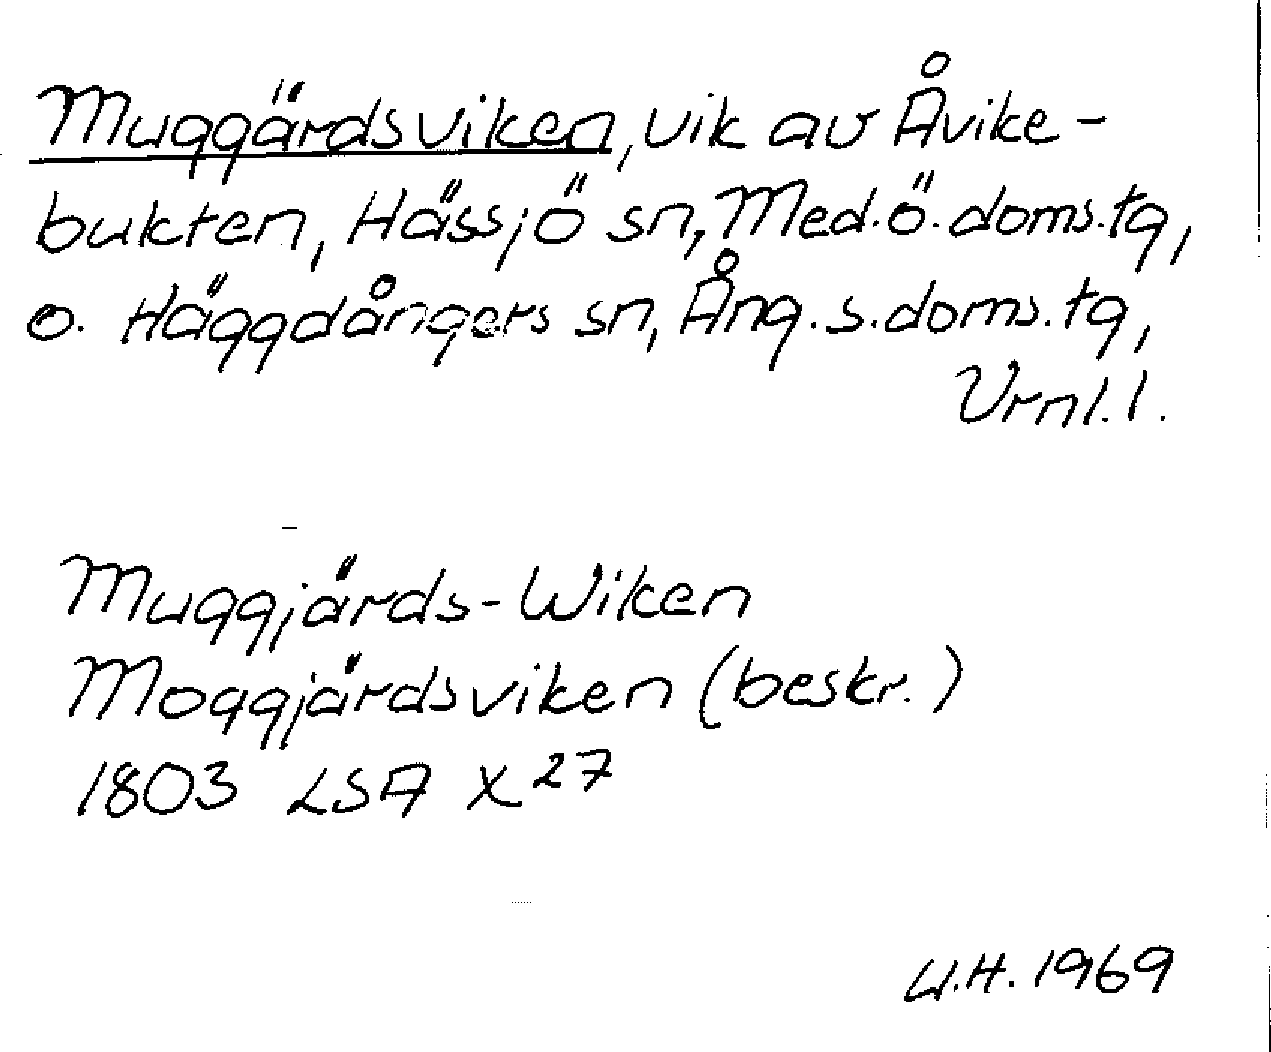 Muggärdsviken, vik av Åvike-
bukten, Hässjö sn, Med.ö.doms.tg,
o. Häggdångers sn, Ång.s.doms.tg,
Vrnl.l.
Muggjärds-Wiken
Moggjärdsviken (beskr.)
1803 LSA X 27
U.H. 1969